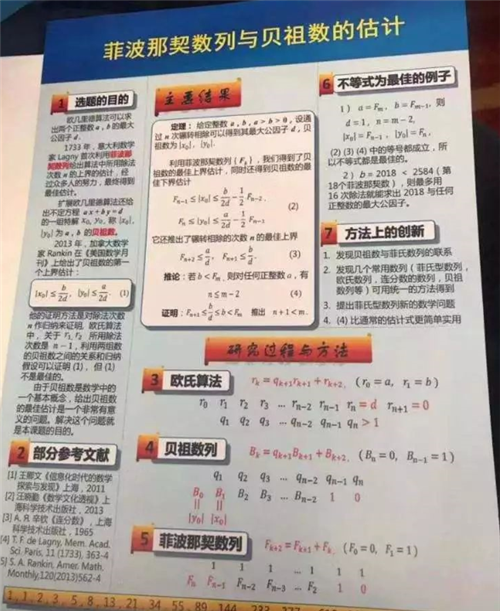 菲波那契数列与贝祖数的估计
1 选题的目的
欧几里德算法可以求
出两个正整数 a, b 的最大
公因子 d 。
1733 年，意大利数学
家 Lagny 首次利用菲波那
契数列给出算法中所用除法
次数 n 的上界的估计，经
过众多人的努力，最终得到
最佳估计。
扩展欧几里德算法还给
出不定方程 ax + by = d
的一组特解 x₀, y₀，称 |x₀|,
|y₀| 为 a, b 的贝祖数。
2013 年，加拿大数学
家 Rankin 在《美国数学月
刊》上给出了贝祖数的第一
个上界估计：
|x₀| ≤ b/2d , |y₀| ≤ a/2d (1)
他的证明方法是对除法次数
n 作归纳来证明. 欧氏算法
中，关于 r₁, r₂ 所用除法
次数是 n − 1，利用两组数
的贝祖数之间的关系和归纳
假设可以证明 (1)，但 (1)
不是最佳的。
由于贝祖数是数学中的
一个基本概念，给出贝祖数
的最佳估计是一个非常有意
义的问题。解决这个问题就
是本课题的目的。
2 部分参考文献
[1] 王鄂文《信息化时代的数学
探索与发现》上海，2011
[2] 汪晓勤《数学文化透视》上
海科学技术出版社，2013
[3] А. Я. 辛钦《连分数》，上海
科学技术出版社，1965
[4] T. F. de Lagny, Mem. Acad.
Sci. Paris, 11 (1733), 363-4
[5] S. A. Rankin, Amer. Math.
Monthly,120(2013)562-4
主要结果
定理：给定整数 a, b , a > b > 0，设通
过 n 次辗转相除可以得到其最大公因子 d，贝
祖数为 |x₀|, |y₀|。
利用菲波那契数列 {Fₖ}，我们得到了贝
祖数的最佳上界估计，同时还得到贝祖数的最
佳下界估计
Fₙ₋₁ ≤ |x₀| ≤ b/2d − 1/2 Fₙ₋₂,
(2)
Fₙ ≤ |y₀| ≤ a/2d − 1/2 Fₙ₋₁.
它还推出了辗转相除的次数 n 的最佳上界
Fₙ₊₂ ≤ a/d , Fₙ₊₁ ≤ b/d. (3)
推论：若 b < Fₘ，则对任何正整数 a，有
n ≤ m − 2 (4)
证明：Fₙ₊₁ ≤ b/d ≤ b < Fₘ 推出 n + 1 < m .
6 不等式为最佳的例子
1 ） a = Fₘ , b = Fₘ₋₁，则
d = 1 , n = m − 2,
|x₀| = Fₙ₋₁ , |y₀| = Fₙ.
(2) (3) (4) 中的等号都成立，所
以不等式都是最佳的。
2 ） b = 2018 < 2584 ( 第
18个菲波那契数 )，则最多用
16 次除法就能求出 2018 与任何
正整数的最大公因子。
7 方法上的创新
1. 发现贝祖数与菲氏数列的联系
2. 发现几个常用数列 ( 菲氏型数列，
欧氏数列，连分数的数列，贝祖
数列等 ) 可用统一的方法得到
3. 提出菲氏型数列新的数学问题
4. (4) 比通常的估计式更简单实用
研究过程与方法
3 欧氏算法 rₖ = qₖ₊₁rₖ₊₁ + rₖ₊₂, (r₀ = a, r₁ = b)
r₀ r₁ r₂ r₃ … rₙ₋₂ rₙ₋₁ rₙ = d rₙ₊₁ = 0
q₁ q₂ q₃ … qₙ₋₂ qₙ₋₁ qₙ > 1
4 贝祖数列 Bₖ = qₖ₊₁Bₖ₊₁ + Bₖ₊₂, (Bₙ = 0, Bₙ₋₁ = 1)
q₁ q₂ q₃ … qₙ₋₂ qₙ₋₁ qₙ
B₀ B₁ B₂ B₃ … Bₙ₋₂ 1 0
|| ||
|y₀| |x₀|
5 菲波那契数列 Fₖ₊₂ = Fₖ₊₁ + Fₖ, (F₀ = 0, F₁ = 1)
1 1 1 … 1 1 1
Fₙ Fₙ₋₁ Fₙ₋₂ Fₙ₋₃ … F₂ 1 0
1, 1, 2, 3, 5, 8, 13, 21, 34, 55, 89, 144, 233